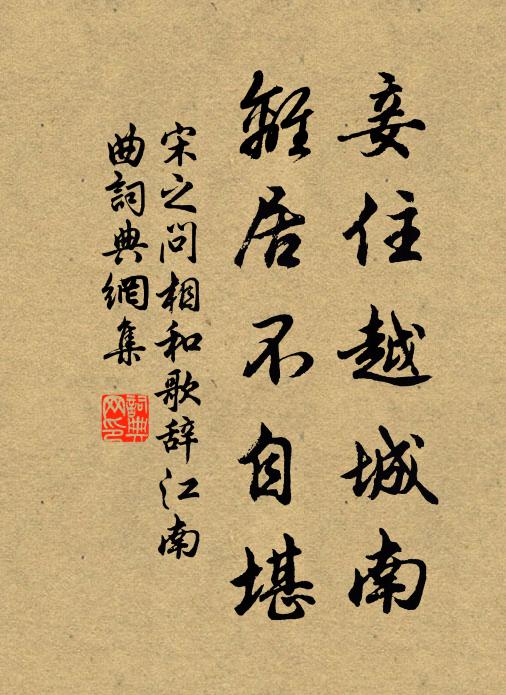 妾住越城南
離居不自堪
宋之问相和歌辞江南
曲詞典網集
詞典網印